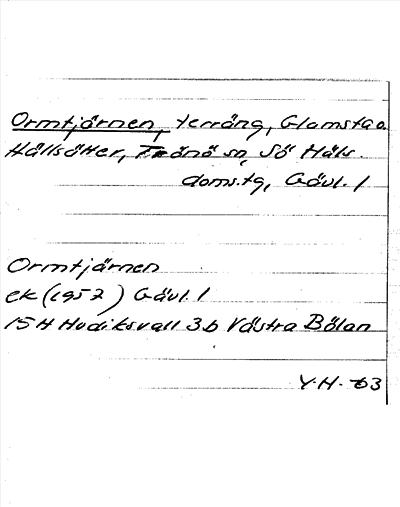 Ormtjärnen, terräng, Glamsta o.
Hällsätter, Tranö sn, Sö Häls.
doms.tg, Gävl. l
Ormtjärnen
ek (1957) Gävl. l
15H Hudiksvall 3b Västra Bölan
Y.H. -63